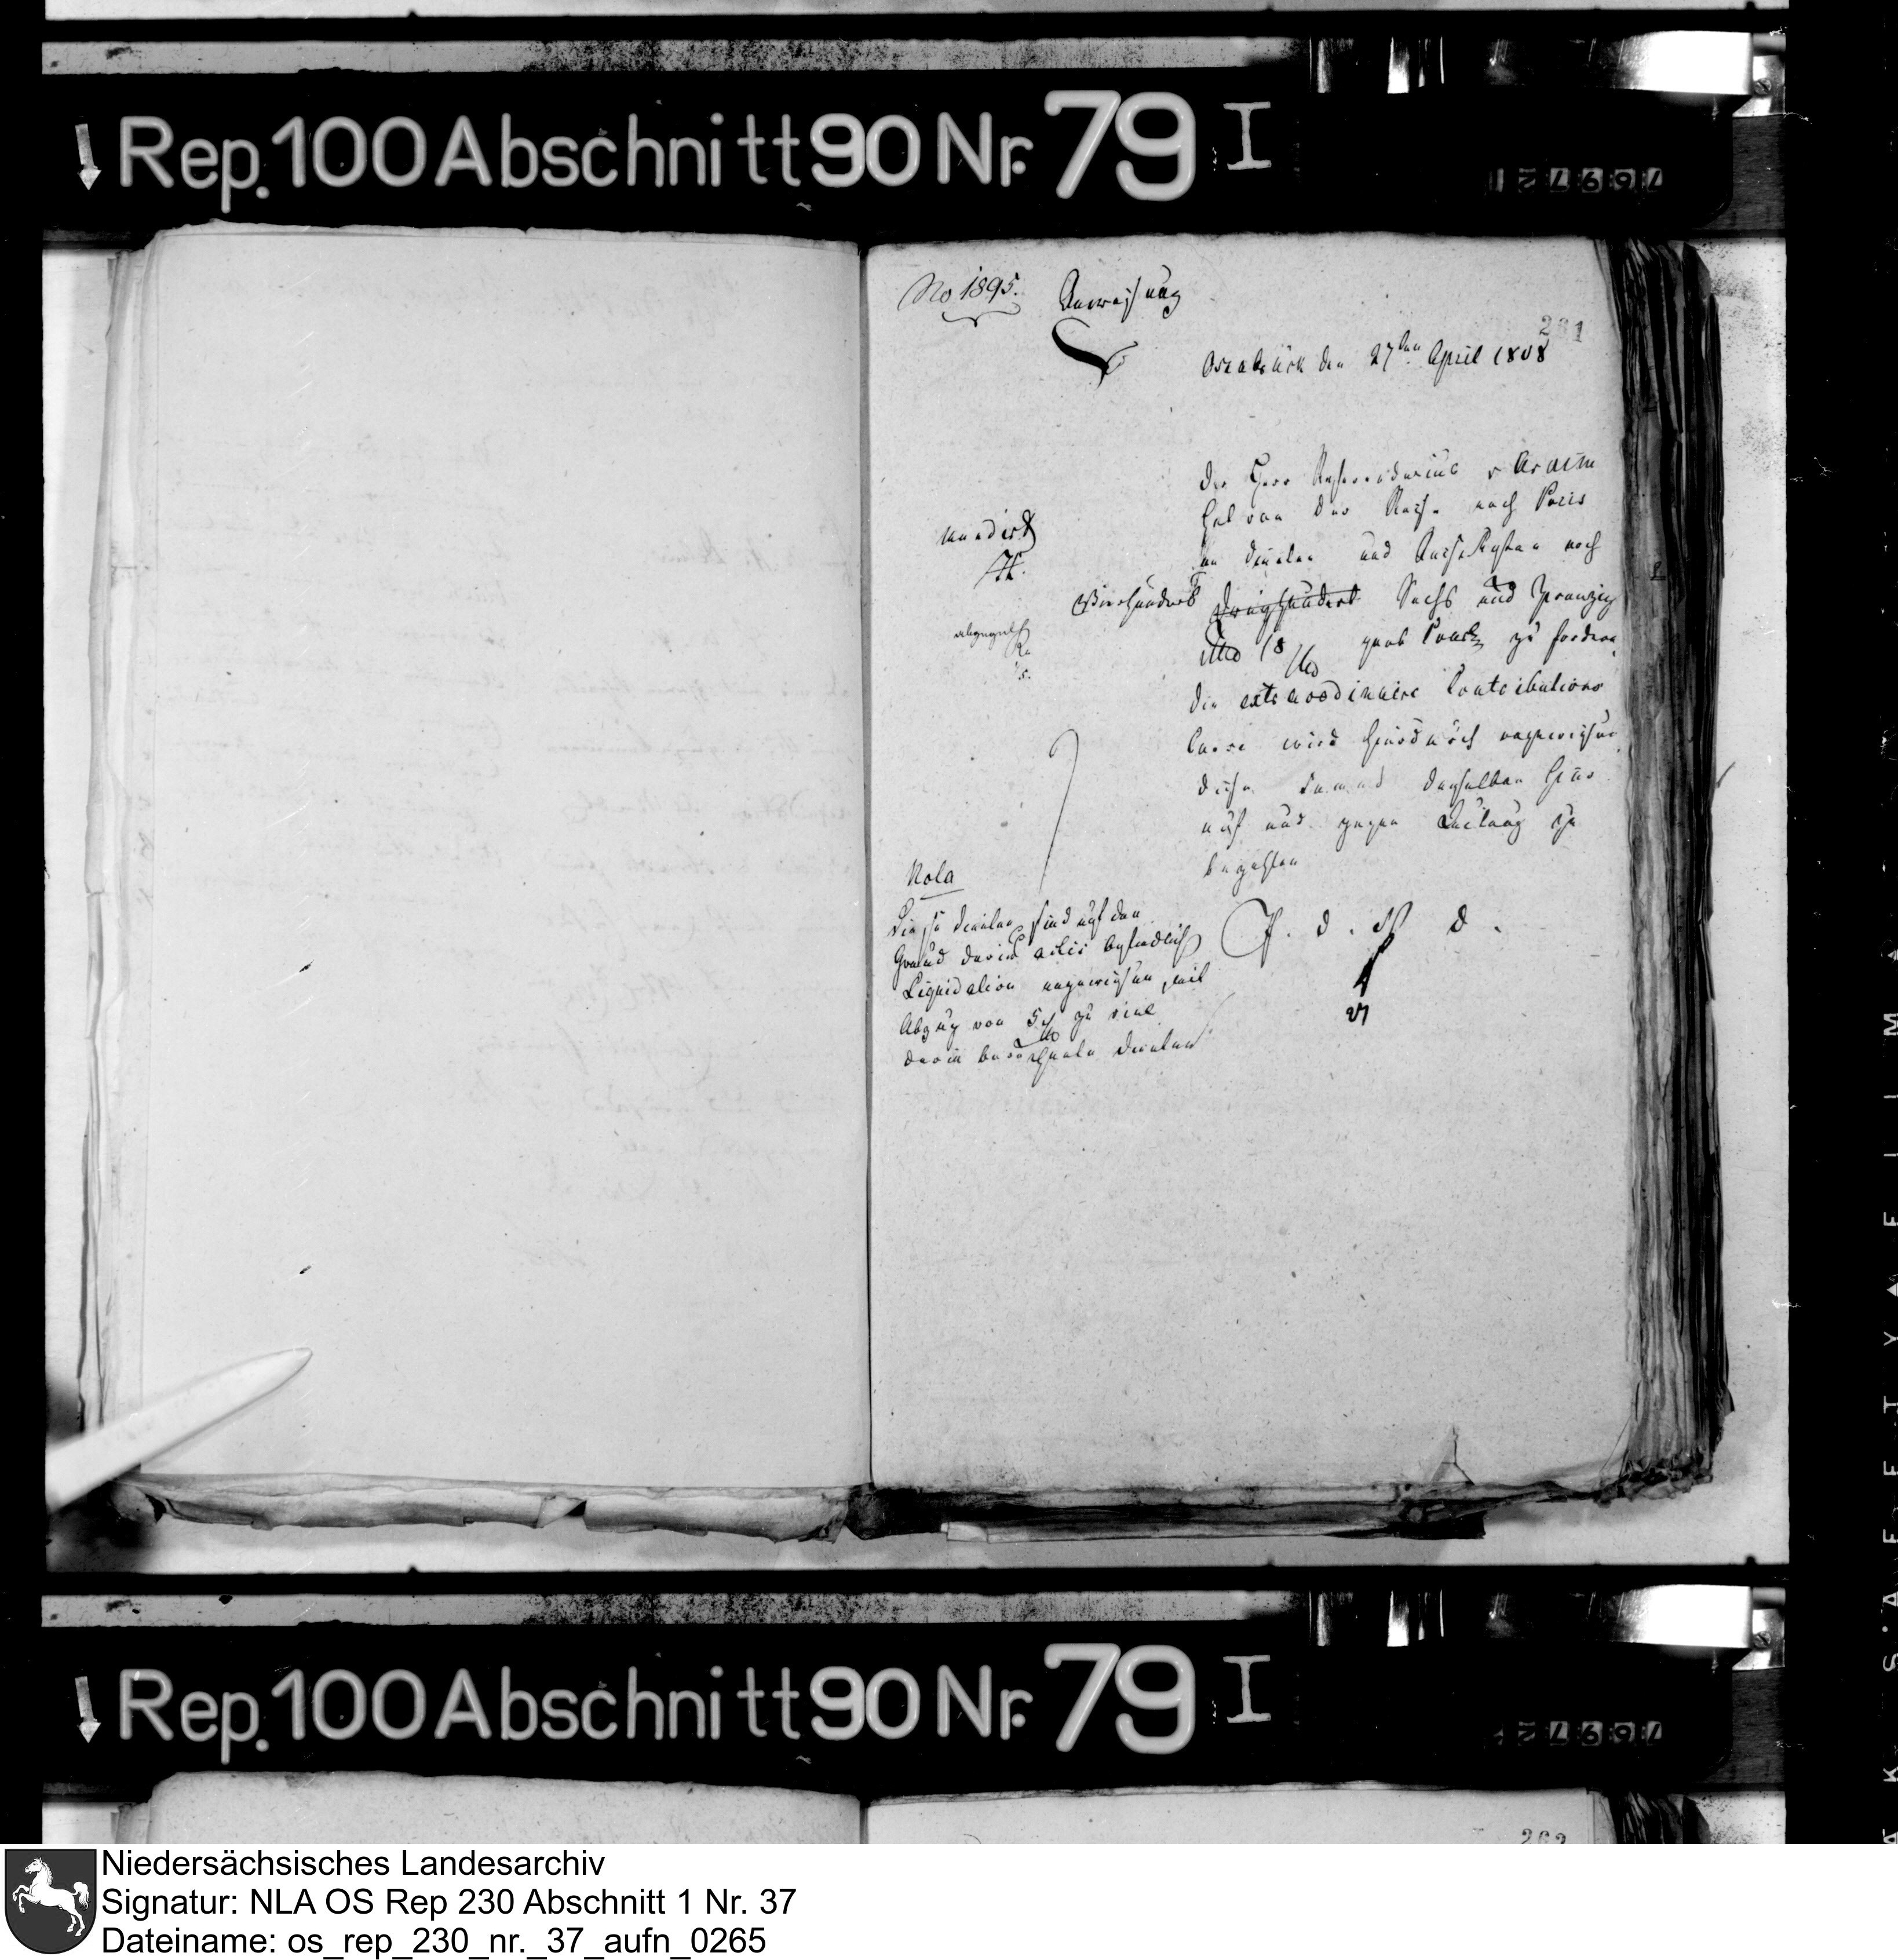 Rep. 100 Abschnitt 90 Nr. 79 I
No 1895. Anweisung
261
Osnabrück den 27ten April 1808
Der Herr Referendarius v Arnim
hat von der Reise nach Paris
an Diaeten und Reisekosten noch
Vierhundert Dreyhundert Sechs und Zwanzig
18 grob Courant zu fordern,
die extraordinaire Contributions
Casse wird hierdurch angewiesen
diese Summe demselben hier
auf und gegen Quitung zu
bezahlen
mundirt
Nota
Diese Diaeten sind auf den
Grund der in actis befindlich
Liquidation angewiesen, mit
Abzug von 5 zu viel
darin berechneten Diaeten
Rep. 100 Abschnitt 90 Nr. 79 I
262
Niedersächsisches Landesarchiv
Signatur: NLA OS Rep 230 Abschnitt 1 Nr. 37
Dateiname: os_rep_230_nr._37_aufn_0265